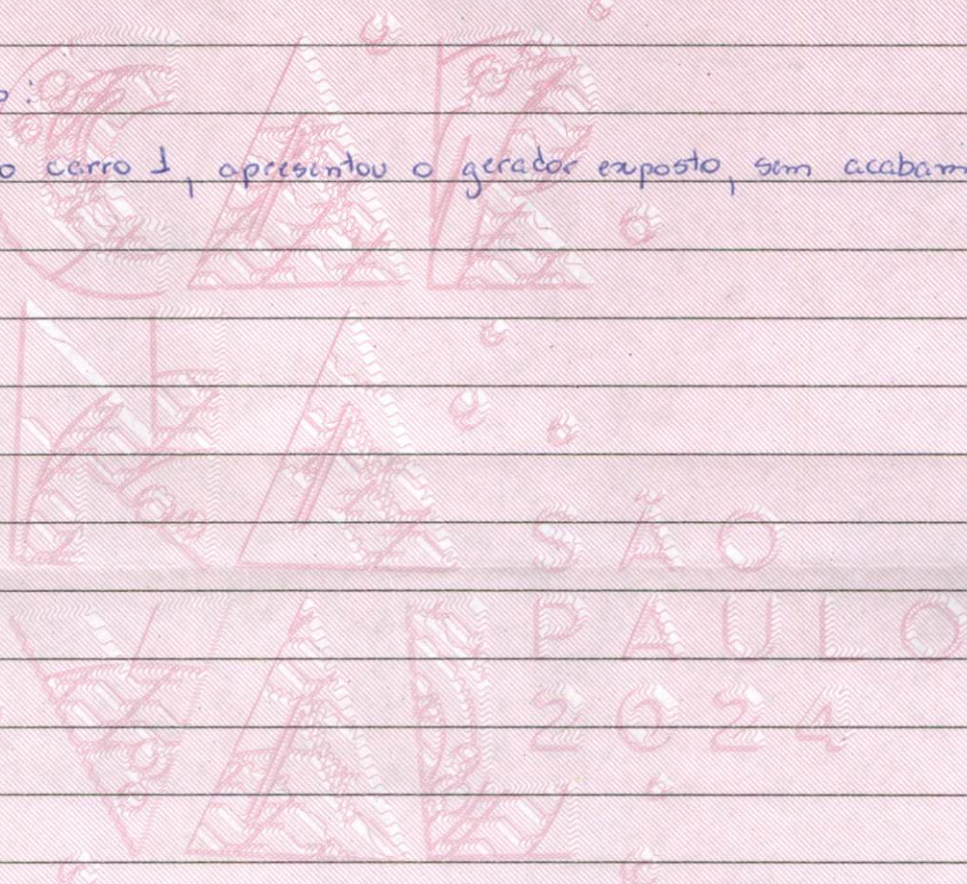 o :
o carro 1, apresentou o gerador exposto, sem acabam
CAR
NA
VAL
SÃO
PAULO
2024